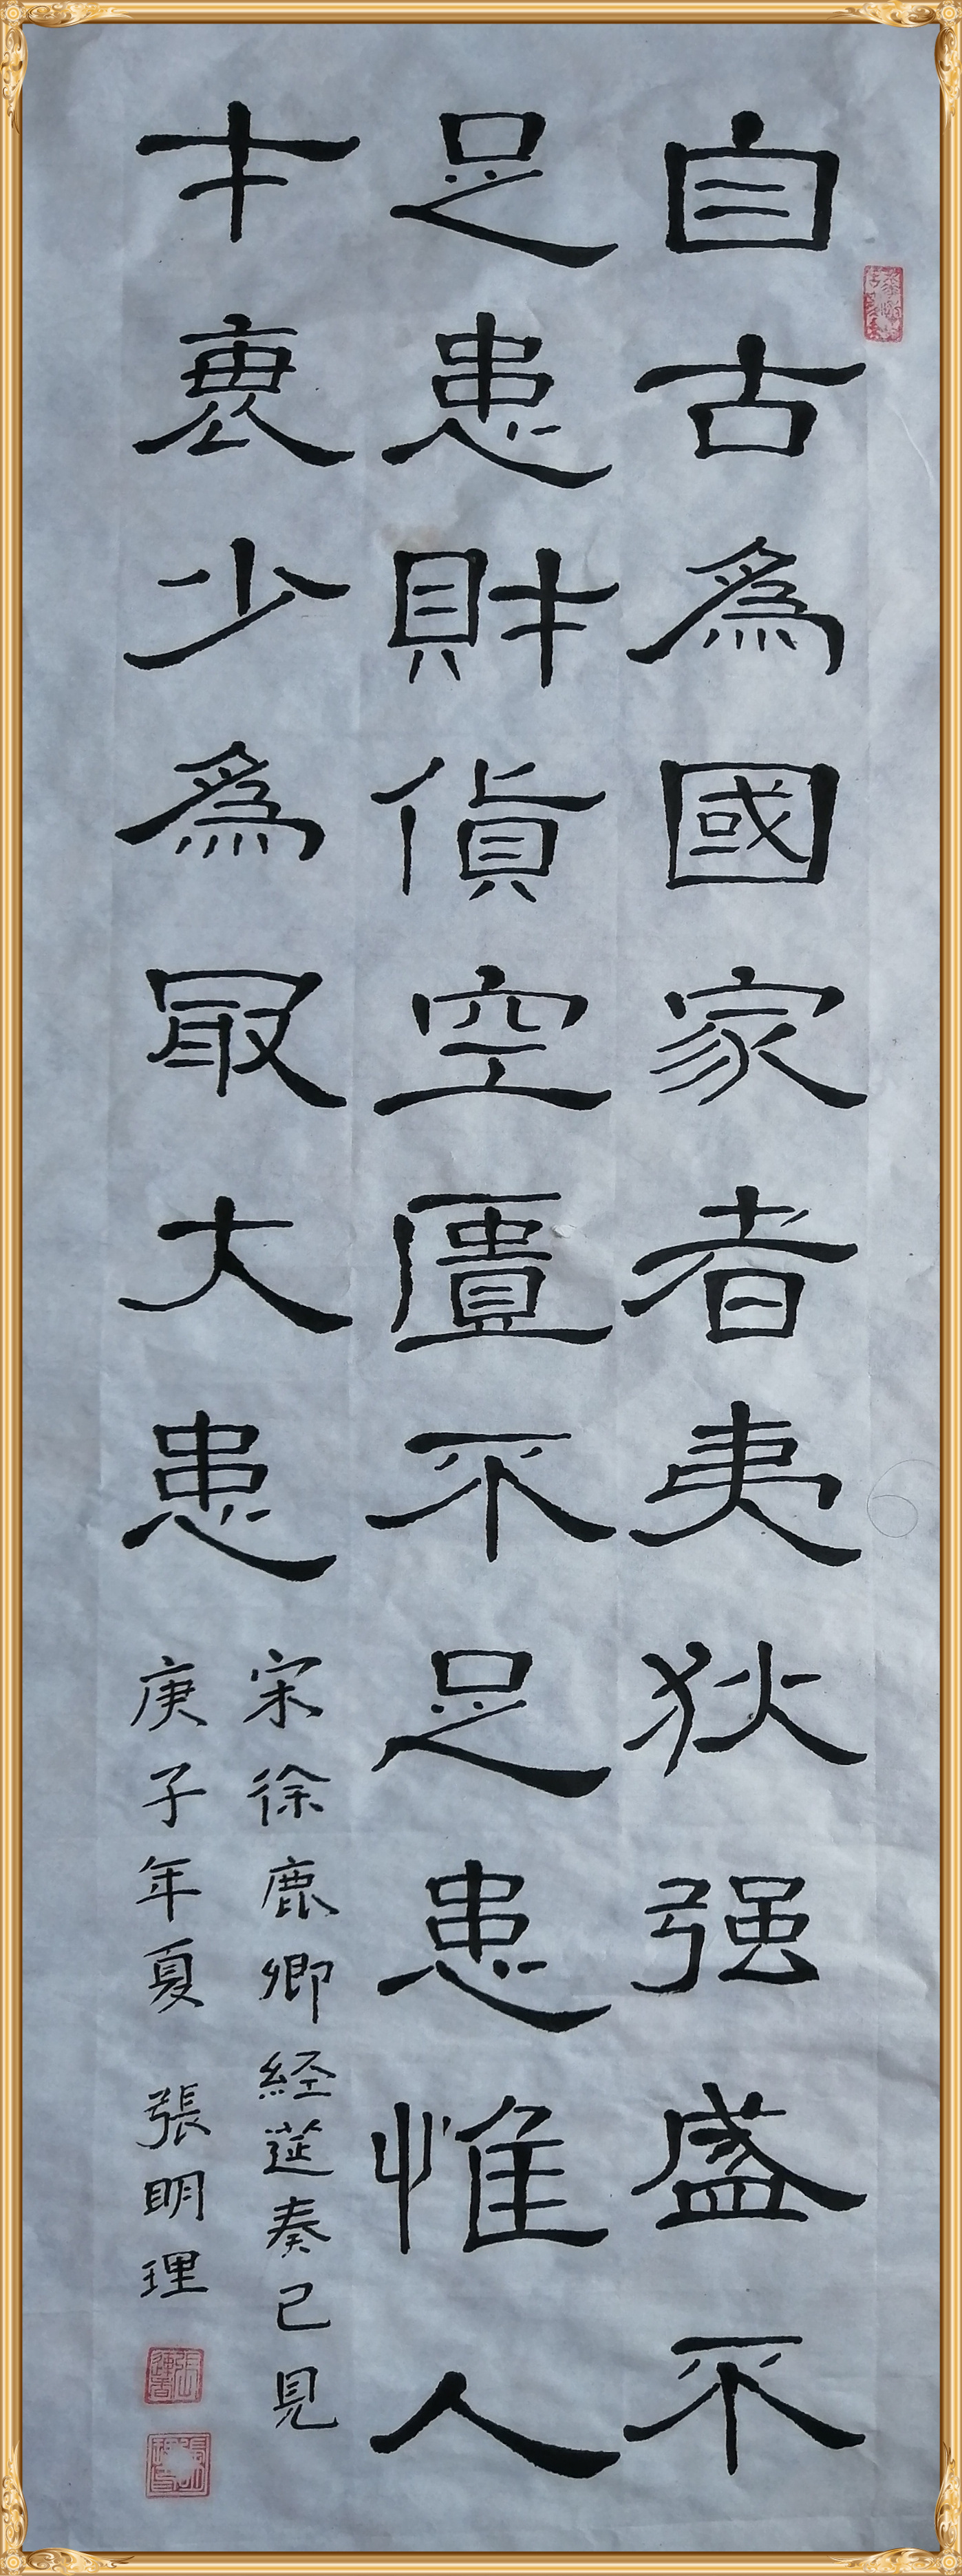 自古為國家者夷狄强盛不
足患財貨空匱不足患惟人
才衰少為最大患
宋徐鹿卿経莚奏己見
庚子年夏 張明理